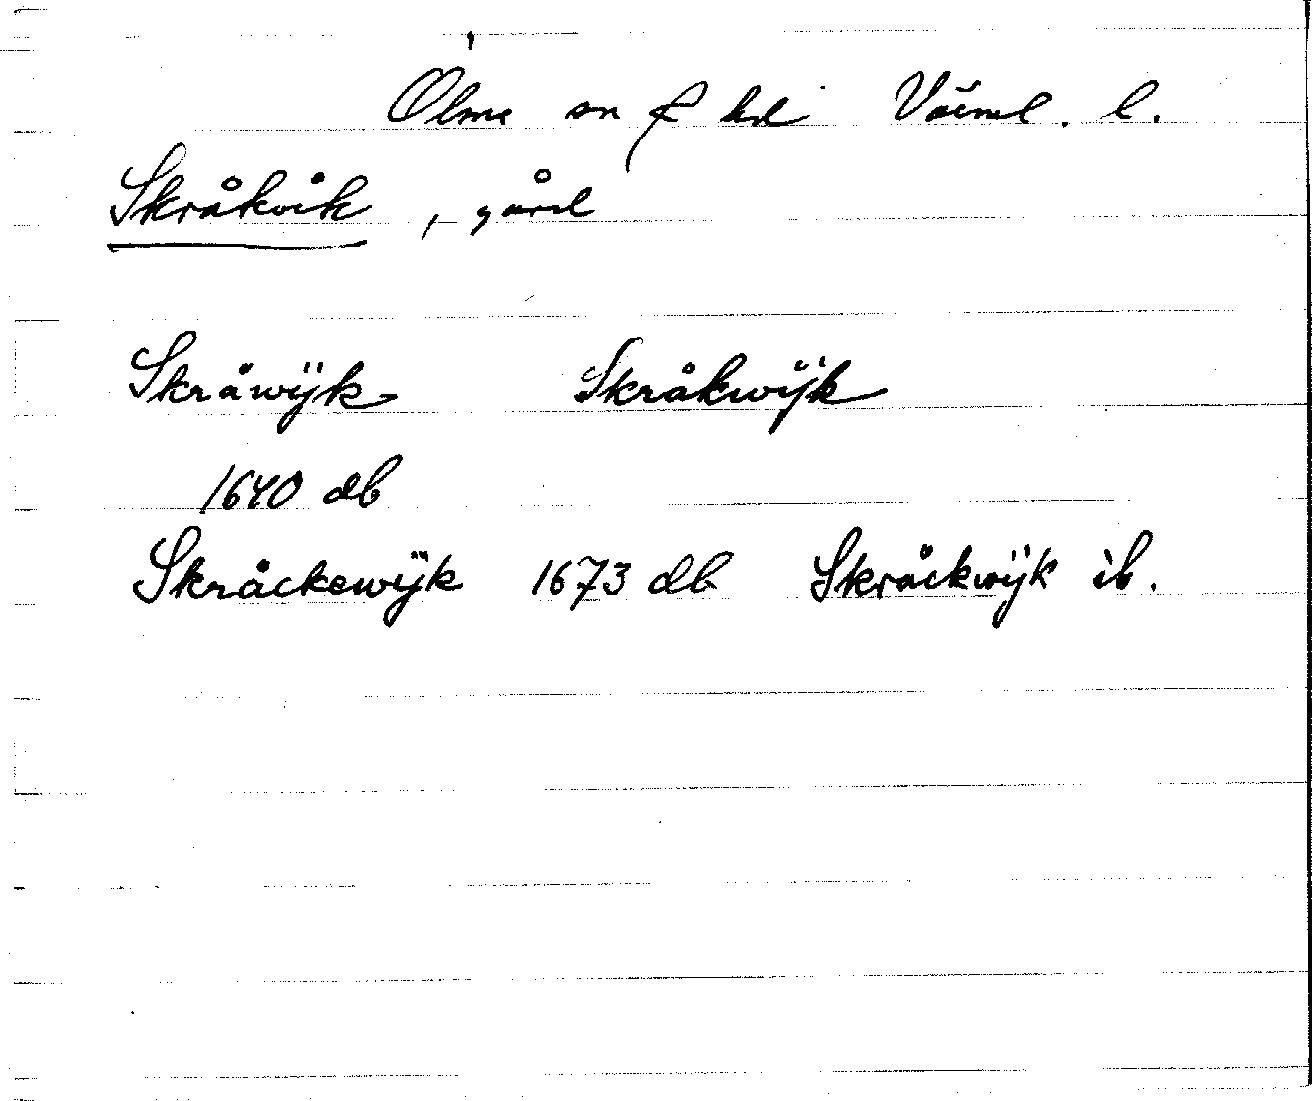 Ölme sn o hd Värml. l.
Skråkvik, gård
Skråwijk Skråkwijk
1640 db
Skråckewijk 1673 db Skråckwijk ib.